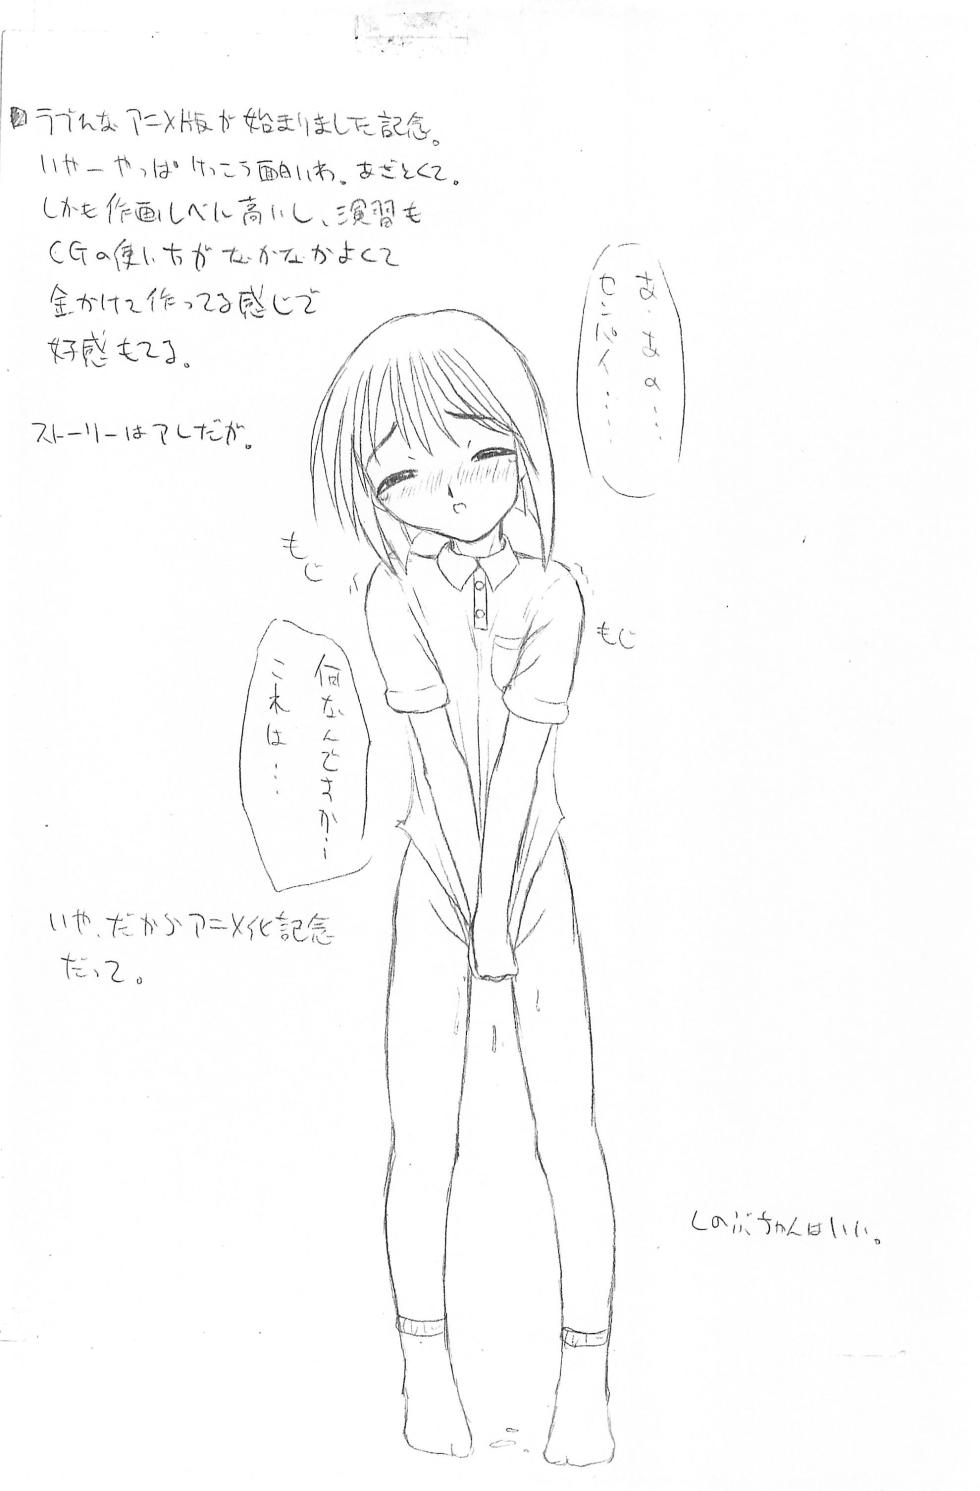 ラブひな アニメ版が始まりました記念。
いやーやっぱけっこう面白いわ。あざとくて。
しかも作画レベル高いし、演習も
CGの使い方がなかなかよくて
金かけて作ってる感じで
好感もてる。
ストーリーはアレだが。
あ・あの…
センパイ……
もじ
もじ
何なんですか…
これは…
いや、だからアニメ化記念
だって。
しのぶちゃんはいい。